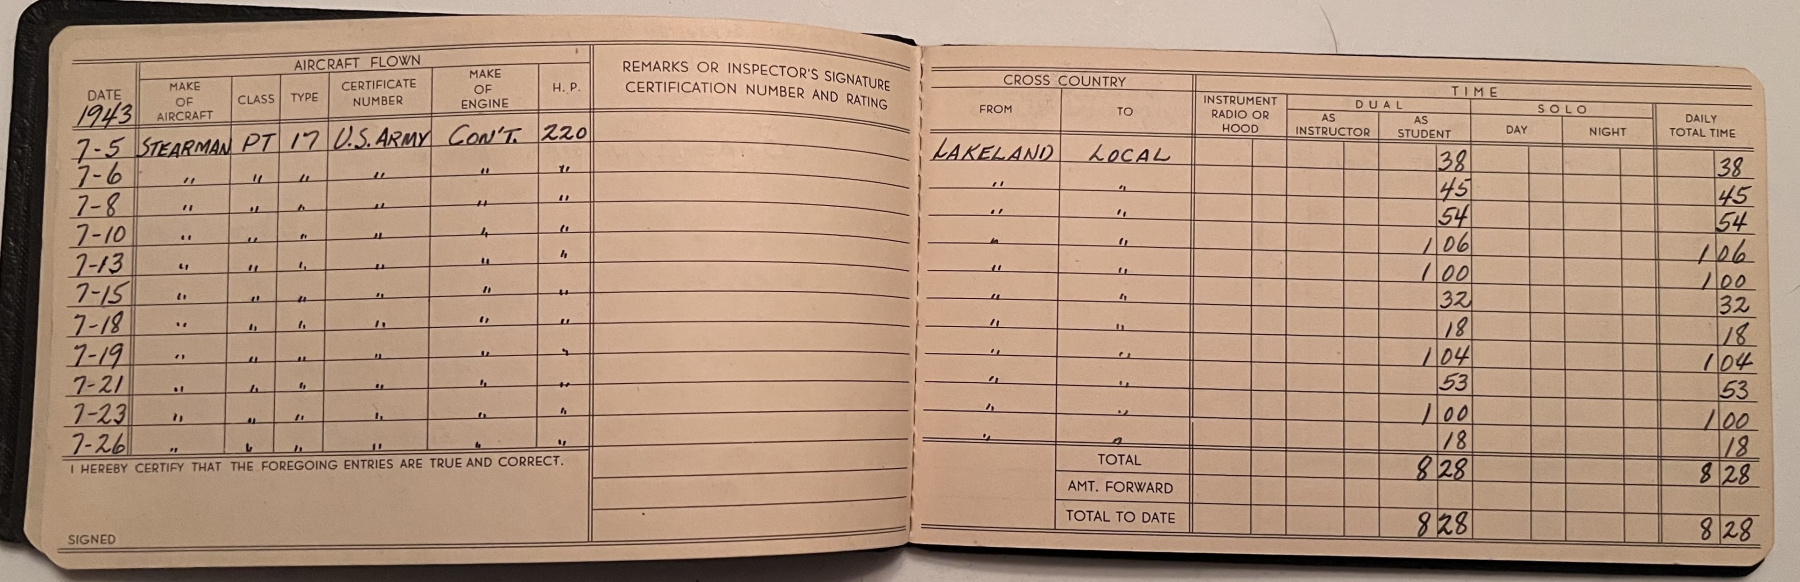 AIRCRAFT FLOWN
DATE 1943 MAKE OF AIRCRAFT CLASS TYPE CERTIFICATE NUMBER MAKE OF ENGINE H. P. REMARKS OR INSPECTOR'S SIGNATURE CERTIFICATION NUMBER AND RATING
CROSS COUNTRY TIME
FROM TO INSTRUMENT RADIO OR HOOD DUAL AS INSTRUCTOR AS STUDENT SOLO DAY NIGHT DAILY TOTAL TIME
7-5 STEARMAN PT 17 U.S. ARMY CON'T. 220 LAKELAND LOCAL 38 38
7-6 " " " " " " " " 45 45
7-8 " " " " " " " " 54 54
7-10 " " " " " " " " 1 06 1 06
7-13 " " " " " " " " 1 00 1 00
7-15 " " " " " " " " 32 32
7-18 " " " " " " " " 18 18
7-19 " " " " " " " " 1 04 1 04
7-21 " " " " " " " " 53 53
7-23 " " " " " " " " 1 00 1 00
7-26 " " " " " " " " 18 18
I HEREBY CERTIFY THAT THE FOREGOING ENTRIES ARE TRUE AND CORRECT.
TOTAL 8 28 8 28
AMT. FORWARD
TOTAL TO DATE 8 28 8 28
SIGNED